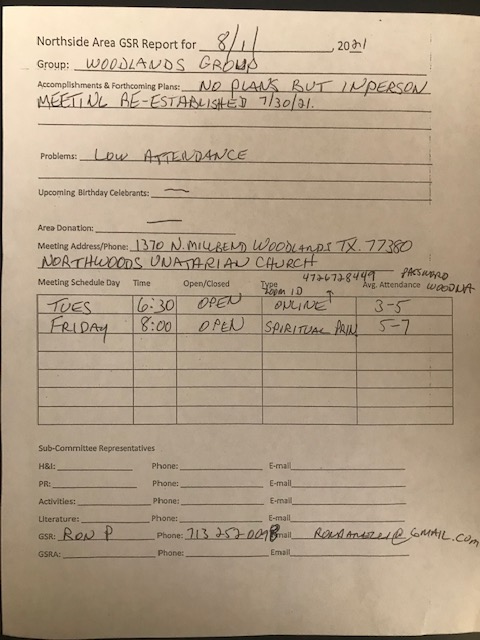 Northside Area GSR Report for 8/1/, 2021
Group: WOODLANDS GROUP
Accomplishments & Forthcoming Plans: NO PLANS BUT INPERSON
MEETING RE-ESTABLISHED 7/30/21.
Problems: LOW ATTENDANCE
Upcoming Birthday Celebrants: —
Area Donation: —
Meeting Address/Phone: 1370 N. MILLBEND WOODLANDS TX. 77380
NORTHWOODS UNATARIAN CHURCH
4726728449 PASSWORD
Meeting Schedule Day Time Open/Closed Type Avg. Attendance WOODNA
ZOOM ID ↑
TUES 6:30 OPEN ONLINE 3-5
FRIDAY 8:00 OPEN SPIRITUAL PRIN 5-7
Sub-Committee Representatives
H&I: Phone: E-mail
PR: Phone: E-mail
Activities: Phone: E-mail
Literature: Phone: E-mail
GSR: RON P Phone: 713 252 0098 Email @GMAIL.COM
GSRA: Phone: Email